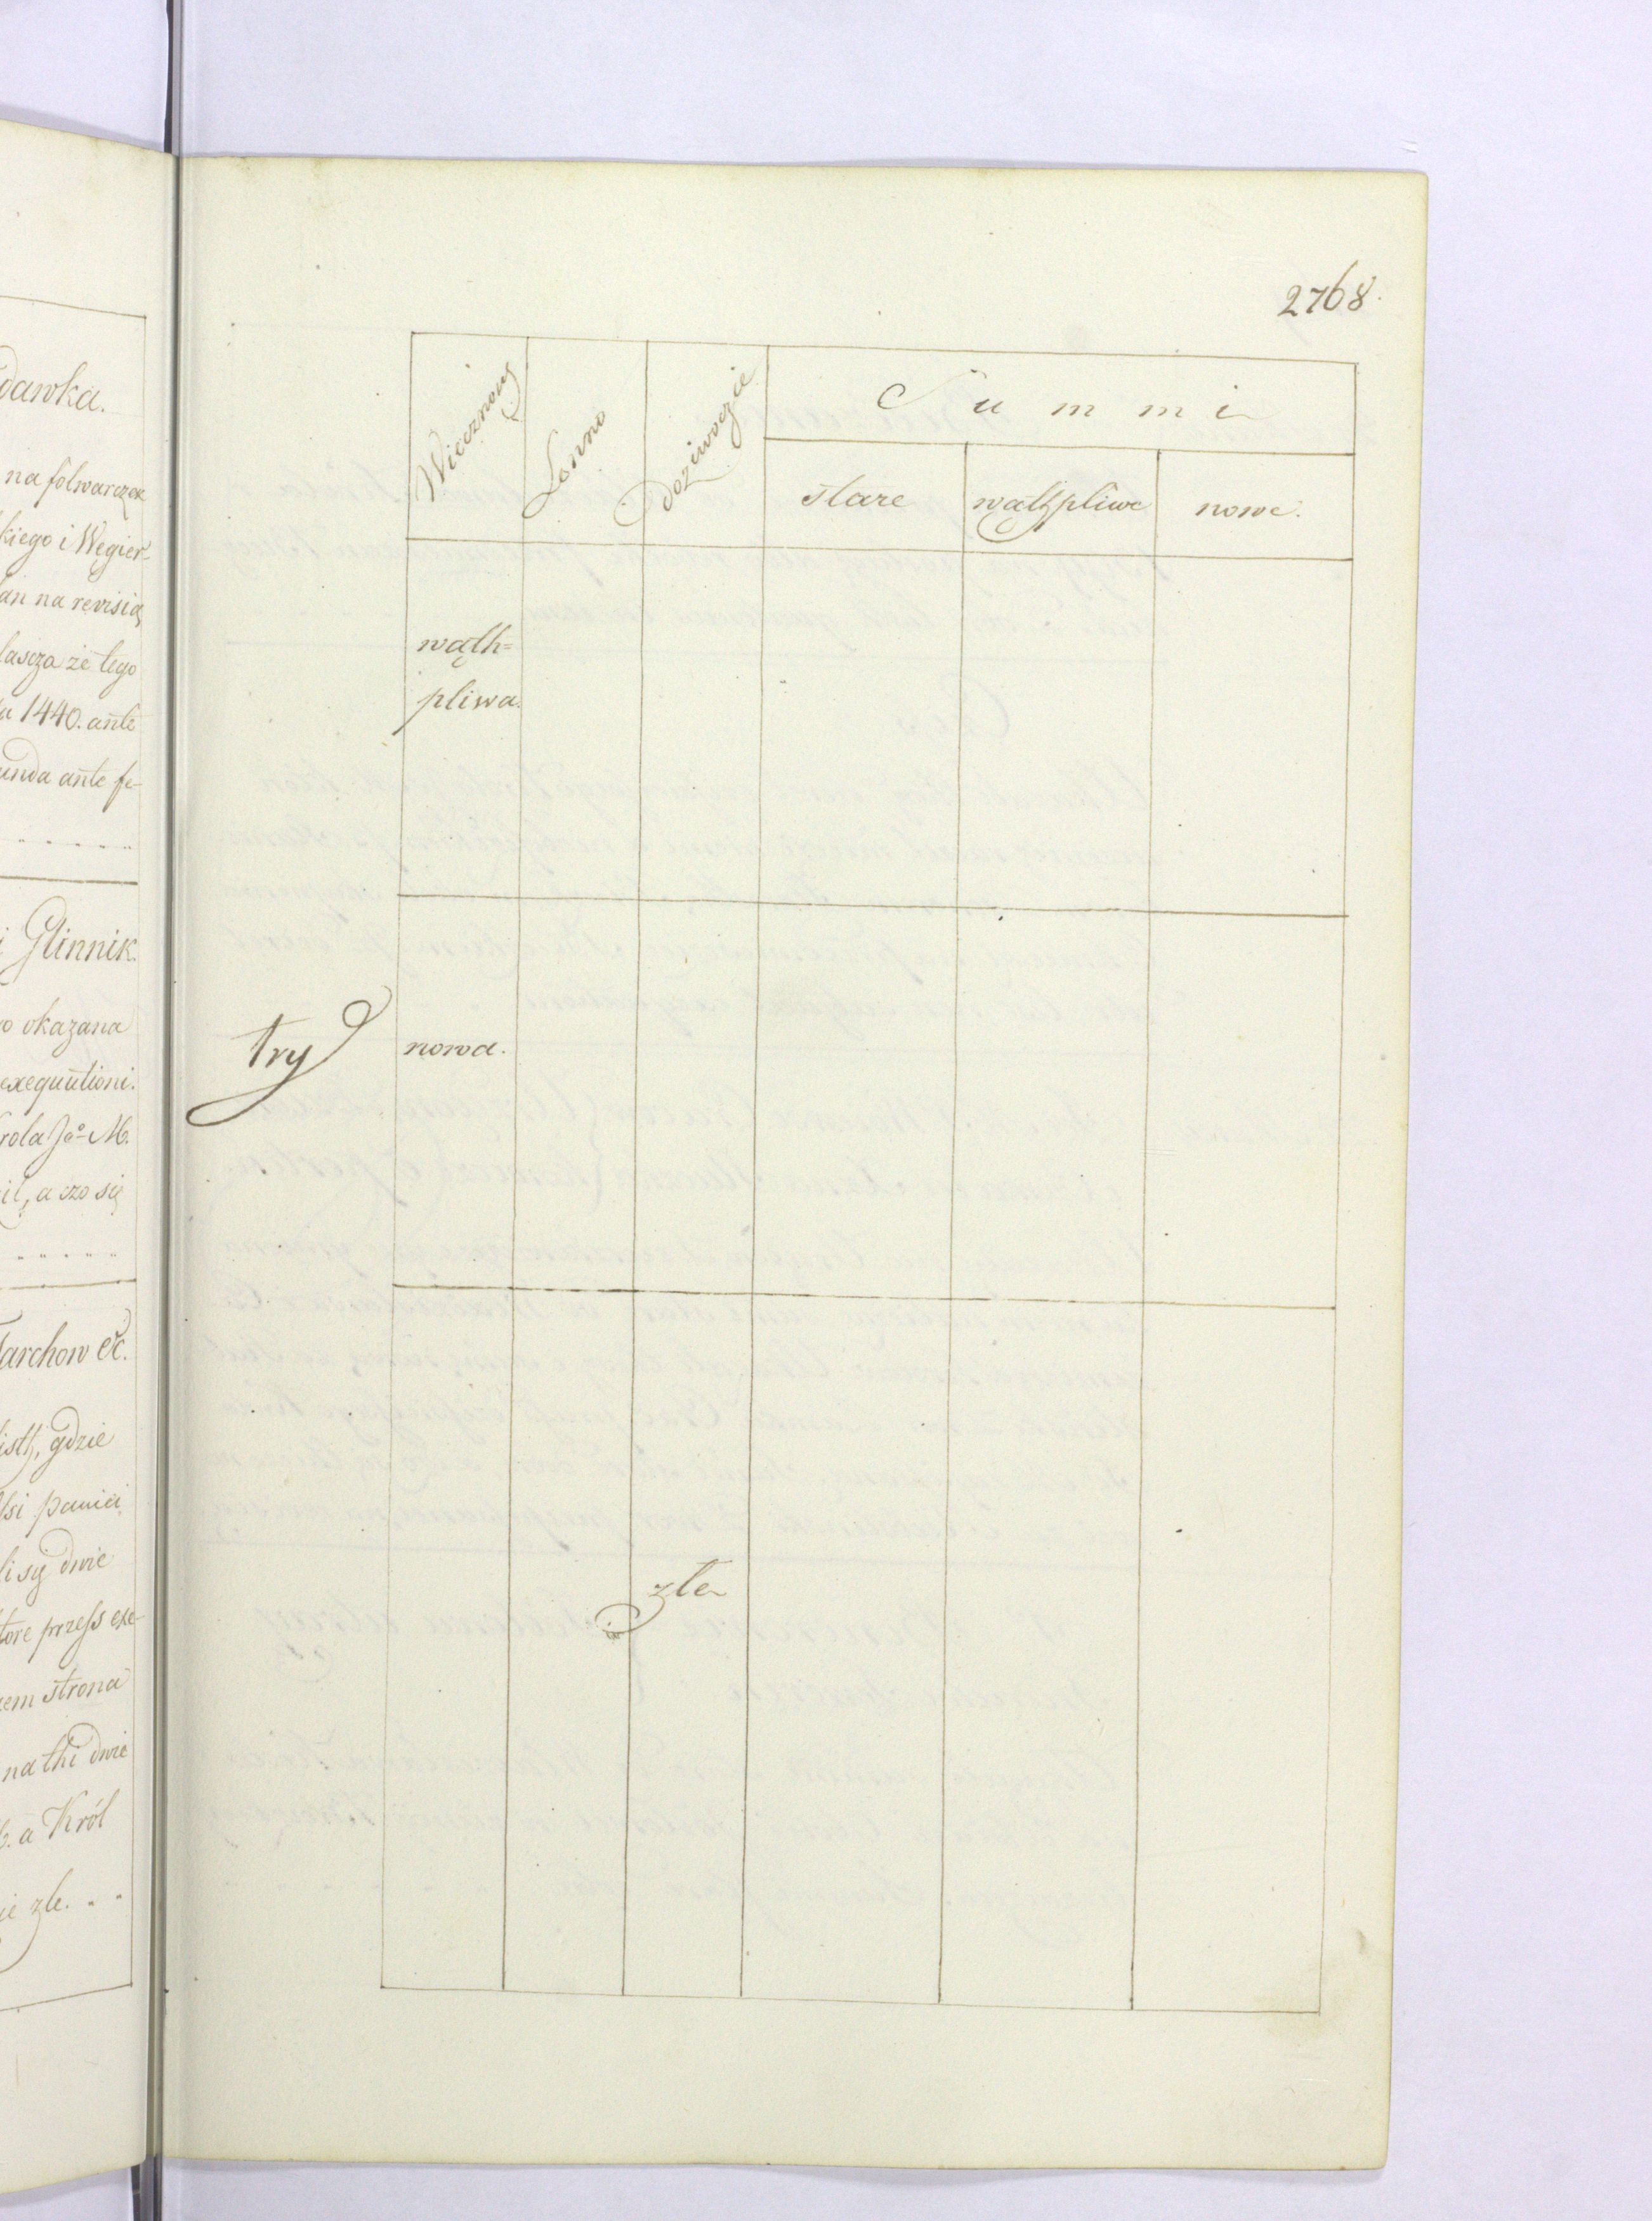 dawka.
na folwarczek
kiego i Węgier-
an na revisią
lascza że tego
1440. ante
unda ante fe-
Glinnik.
okazana
exequutioni.
rola Jo M.
il, a czo się
archow &c.
isth, gdzie
si panici
li są dwie
tore przess exe-
em strona
na thi dwie
a Król
ie zle. . .
2768.
Wiecznoscz
Lenno
Dożiwoczie
Summi
stare
wąthpliwe
nowe.
wąth=
pliwa.
try
nowa.
złe